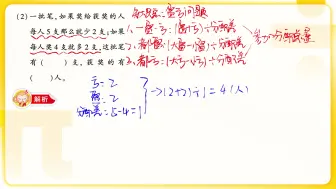 (2)一批笔,如果奖给获奖的人
每人5支那么就少2支;如果
每人奖4支就多2支,这批笔
有(    )支,获奖的有
(    )人。
解析
1.一盈一亏:(盈+亏)÷分配差
2.都盈:(大盈-小盈)÷分配差
3.都亏:(大亏-小亏)÷分配差
亏=2
盈=2
分配差=5-4=1
→(2+2)÷1=4(人)